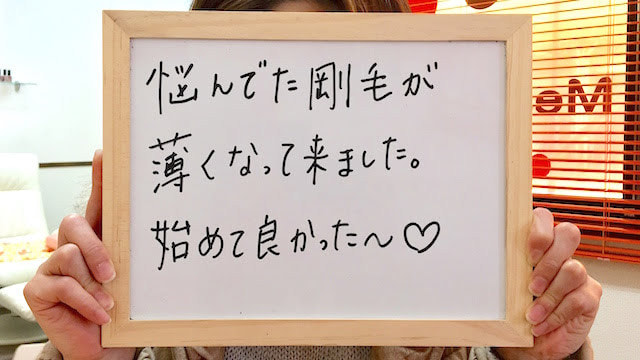 悩んでた剛毛が
薄くなって来ました。
始めて良かった〜♡
Me